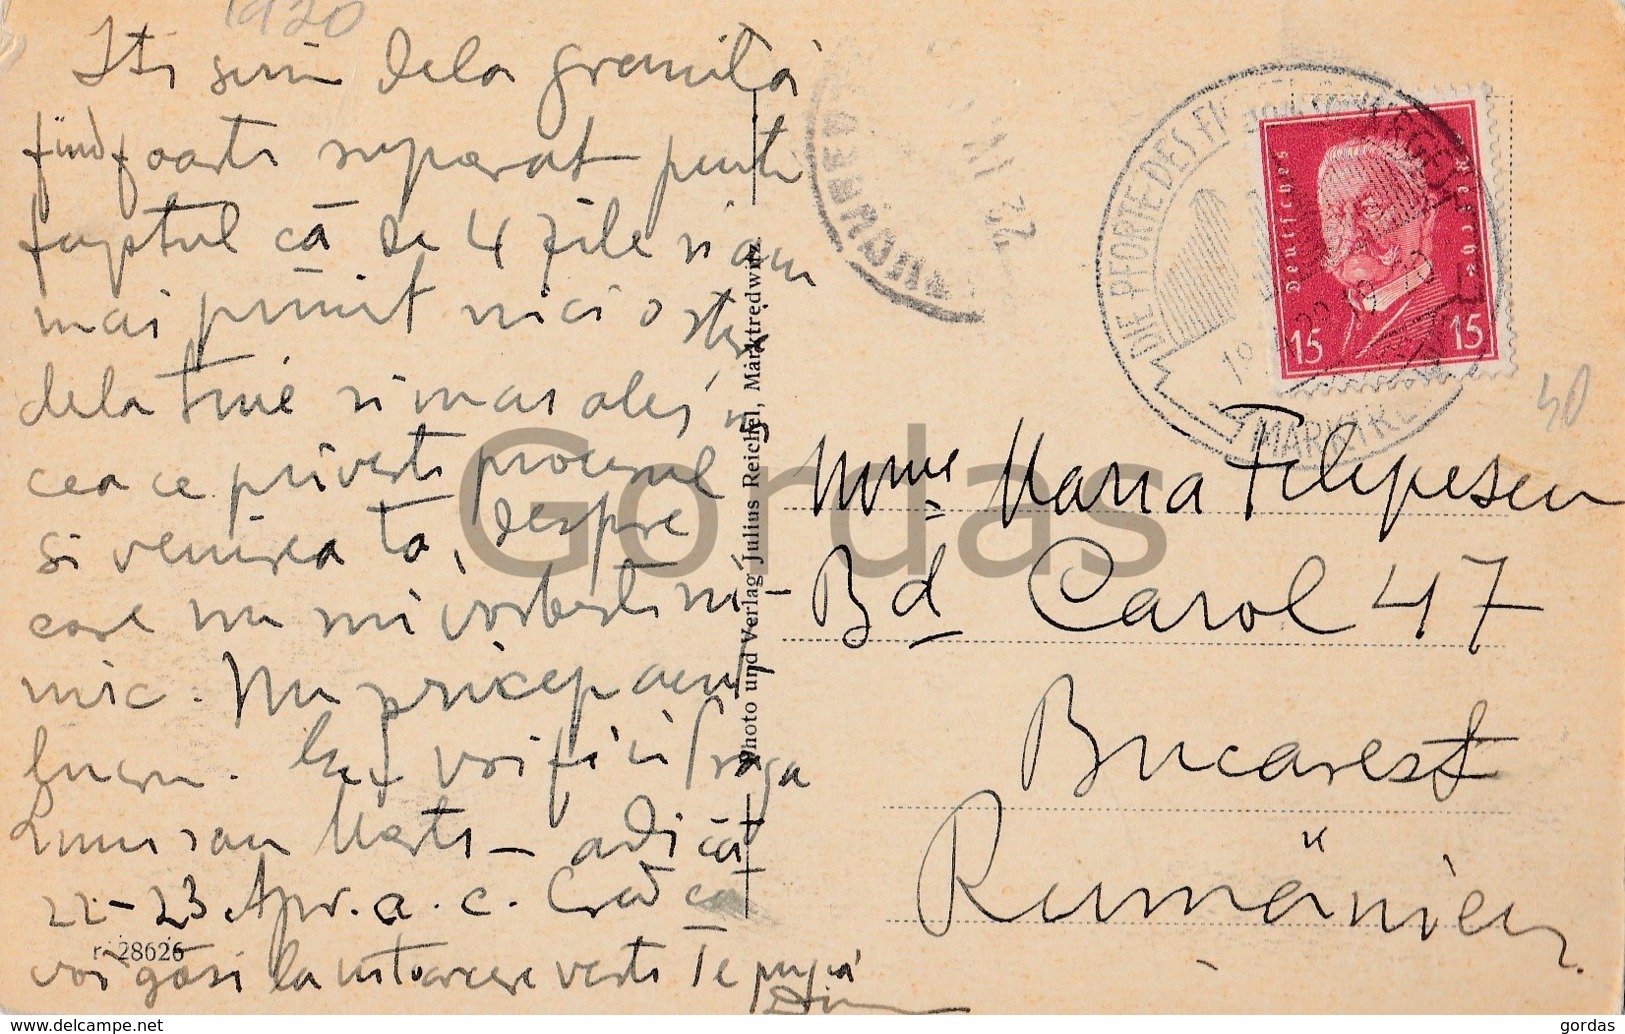 1920
Iti scriu dela granita
fiind foarte suparat pentru
faptul că de 4 zile n'am
mai primit nici o stire
dela tine si mas ales in
ceace priveste procesul
si venirea ta, despre
care nu mi vorbesti ni-
mic. Nu pricep acest
lucru. Eu voi fi in Praga
Luni sau Marti – adică
22-23 Apr. a. c. Cred că
voi găsi la intoarcere vesti Te pupă
r 28626
Photo und Verlag Julius Reichel, Marktredwitz
DIE PFORTE DES
MARKTR
Deutsches Reich
15 15
50
Mme Maria Filipescu
Bd Carol 47
Bucarest
Rumänien
Gordas
delcampe.net
gordas